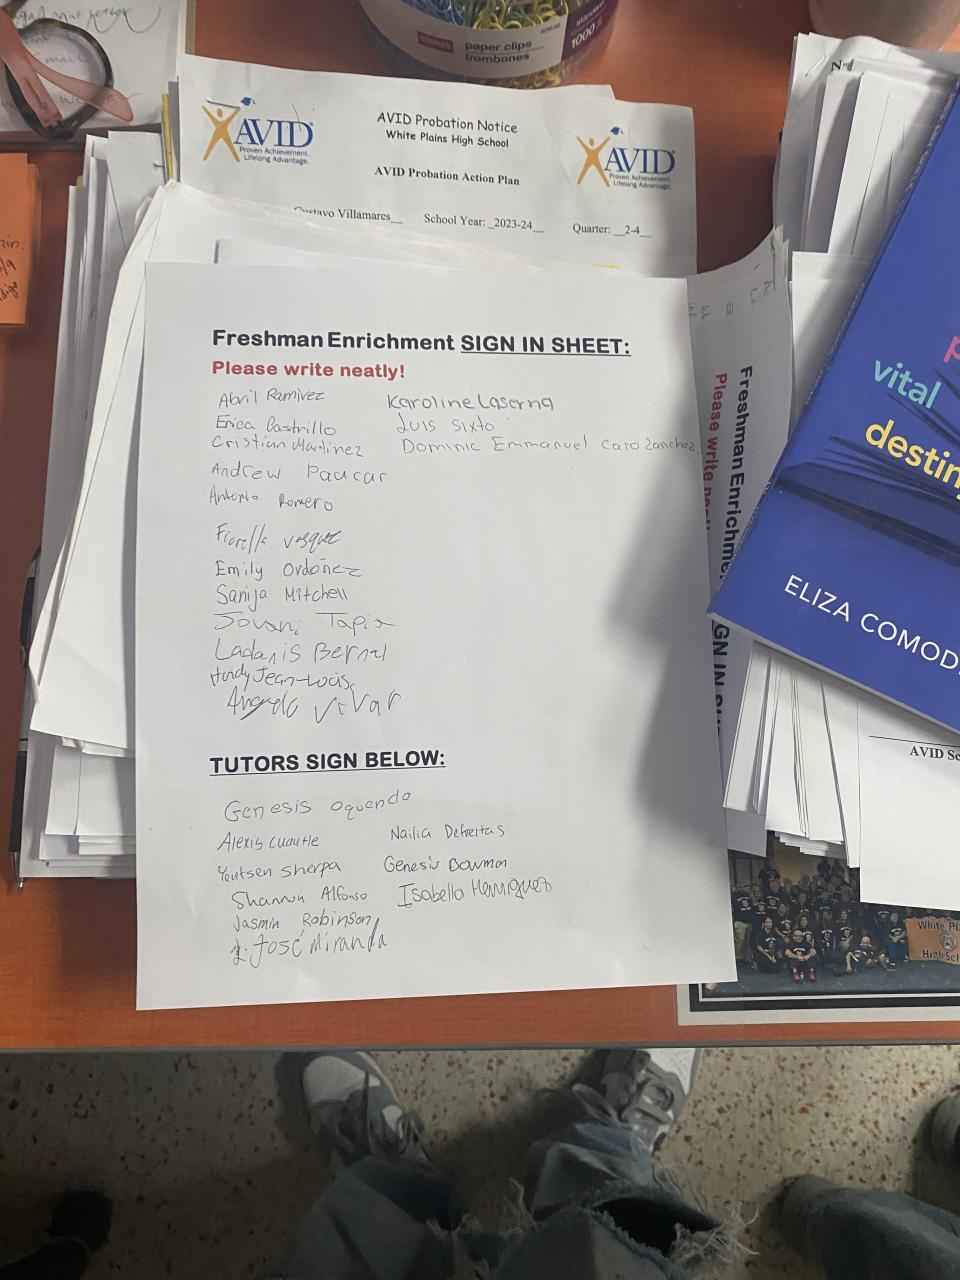 STAPLES
paper clips
trombones
40638
standard
1000
AVID
Proven Achievement.
Lifelong Advantage.
AVID Probation Notice
White Plains High School
AVID Probation Action Plan
AVID
Proven Achievement.
Lifelong Advantage.
Gustavo Villamares__ School Year: _2023-24__ Quarter: __2-4_
Freshman Enrichment SIGN IN SHEET:
Please write neatly!
Abril Ramirez Karoline Laserna
Erica Castrillo Luis Sixto
Cristian Martinez Dominic Emmanuel Caro Sanchez
Andrew Paucar
Antonio Romero
Fiorella Vasquez
Emily Ordoñez
Sanija Mitchell
Jovani Tapia
Ladanis Bernal
Handy Jean-Louis
Angelo Vivar
TUTORS SIGN BELOW:
Genesis Oquendo
Alexis Cuautle Nailia Defreitas
Yeutsen Sherpa Genesis Bowman
Shannon Alfonso Isabella Henriquez
Jasmin Robinson
José Miranda
Freshman Enrichme
Please write neatl
GN IN SH
vital
destin
ELIZA COMOD
AVID Sc
White Pl
High Sch